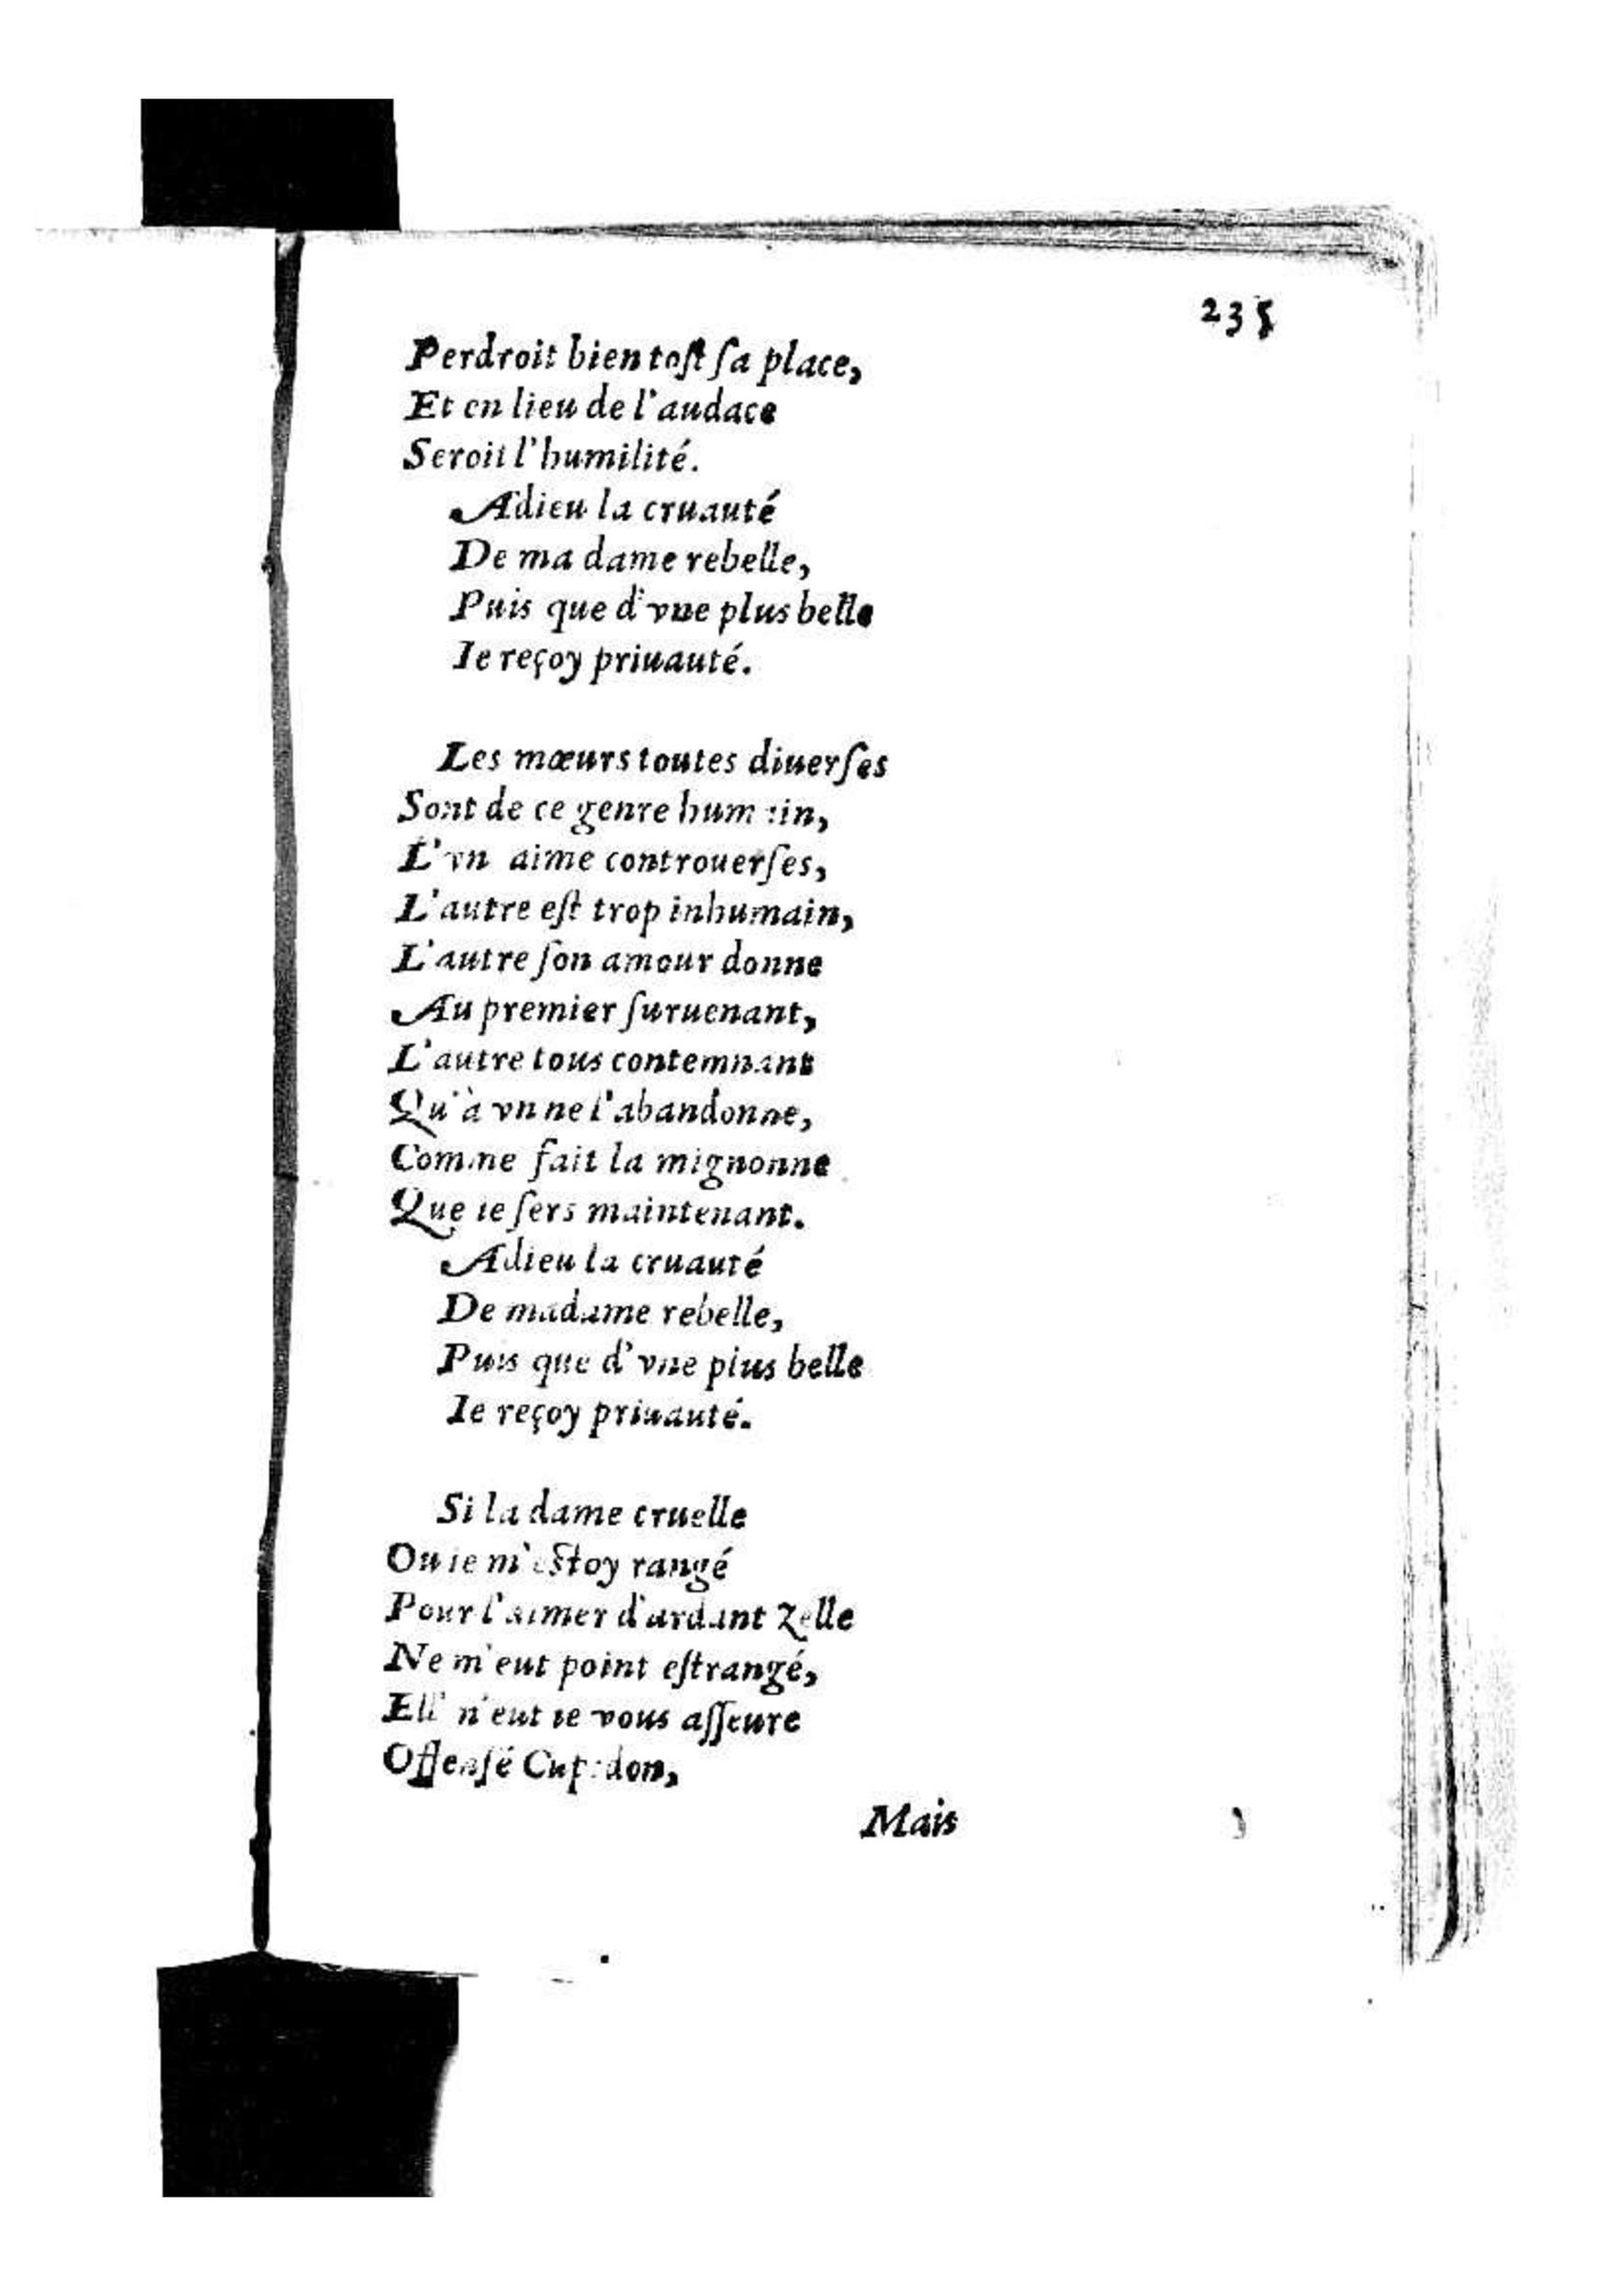 235
Perdroit bien toſt ſa place,
Et en lieu de l'audace
Seroit l'humilité.
Adieu la cruauté
De ma dame rebelle,
Puis que d'vne plus belle
Ie reçoy priuauté.
Les mœurs toutes diuerſes
Sont de ce genre humain,
L'vn aime controuerſes,
L'autre eſt trop inhumain,
L'autre ſon amour donne
Au premier ſuruenant,
L'autre tous contemnant
Qu'à vn ne l'abandonne,
Comme fait la mignonne
Que ie ſers maintenant.
Adieu la cruauté
De madame rebelle,
Puis que d'vne plus belle
Ie reçoy priuauté.
Si la dame cruelle
Ou ie m'eſtoy rangé
Pour l'aimer d'ardant zelle
Ne m'eut point eſtrangé,
Ell' n'eut ie vous aſſeure
Offenſé Cupidon,
Mais